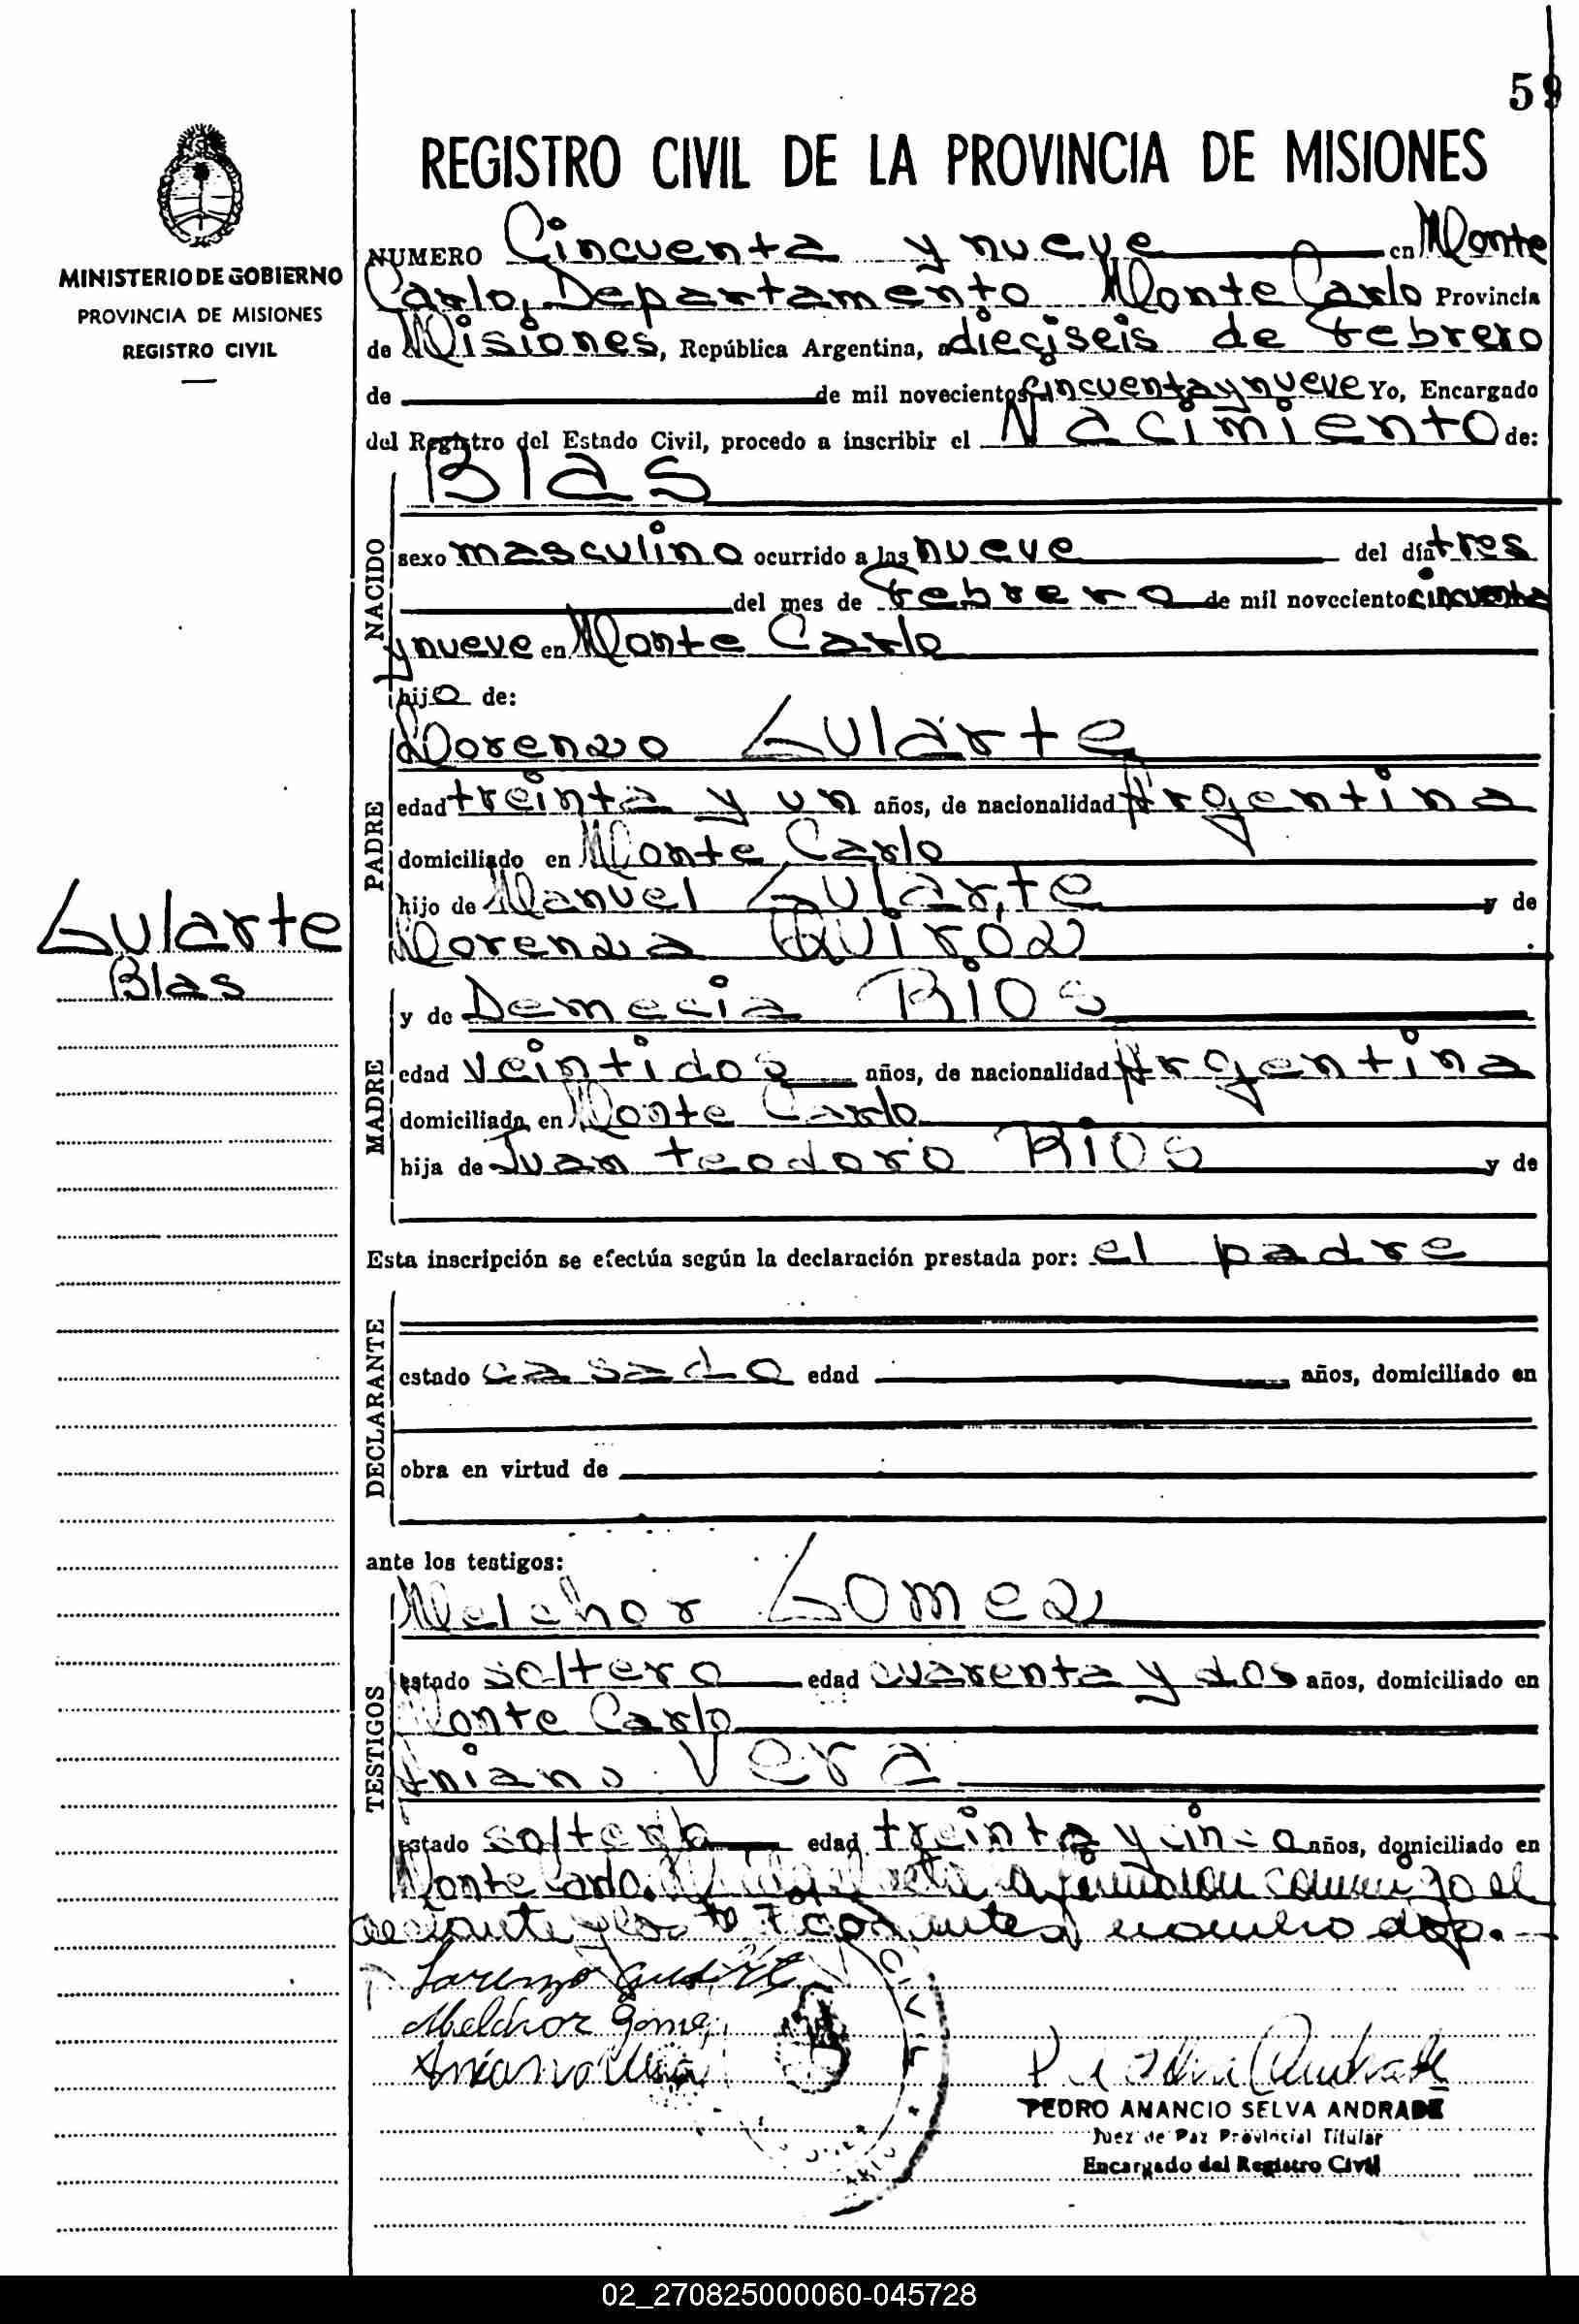 59
REGISTRO CIVIL DE LA PROVINCIA DE MISIONES
MINISTERIO DE GOBIERNO
PROVINCIA DE MISIONES
REGISTRO CIVIL
NUMERO Cincuenta y nueve en Monte
Carlo, Departamento Monte Carlo Provincia
de Misiones, República Argentina, a dieciseis de Febrero
de de mil novecientos cincuenta y nueve Yo, Encargado
del Registro del Estado Civil, procedo a inscribir el Nacimiento de:
NACIDO
Blas
sexo masculino ocurrido a las nueve del día tres
del mes de Febrero de mil novecientos cincuenta
y nueve en Monte Carlo
hijo de:
PADRE
Lorenzo Gularte
edad treinta y un años, de nacionalidad Argentina
domiciliado en Monte Carlo
hijo de Manuel Gularte y de
Lorenza Quiroz
Gularte
Blas
MADRE
y de Demecia Rios
edad veintidos años, de nacionalidad Argentina
domiciliada en Monte Carlo
hija de Juan teodoro Rios y de
Esta inscripción se efectúa según la declaración prestada por: el padre
DECLARANTE
estado casado edad años, domiciliado en
obra en virtud de
ante los testigos:
TESTIGOS
Melchor Gomez
estado soltero edad cuarenta y dos años, domiciliado en
Monte Carlo
Aniano Vera
estado soltero edad treinta y cinco años, domiciliado en
Monte Carlo. el acta la firmaron conmigo el
y los
Lorenzo Gularte
Melchor Gomez
Aniano Vera
PEDRO AMANCIO SELVA ANDRADE
Juez de Paz Provincial Titular
Encargado del Registro Civil
02_270825000060-045728